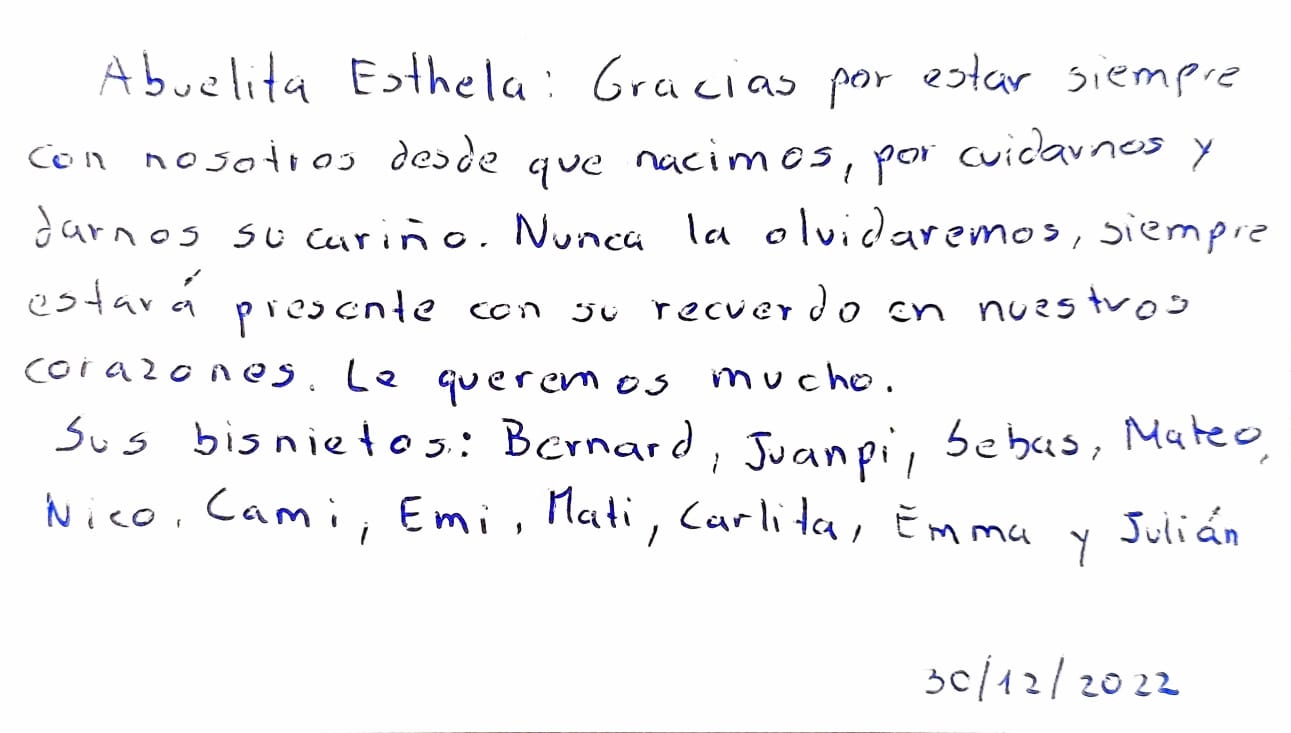 Abuelita Esthela: Gracias por estar siempre
con nosotros desde que nacimos, por cuidarnos y
darnos su cariño. Nunca la olvidaremos, siempre
estará presente con su recuerdo en nuestros
corazones. Le queremos mucho.
Sus bisnietos: Bernard, Juanpi, Sebas, Mateo,
Nico, Cami, Emi, Mati, Carlita, Emma y Julián
30/12/2022